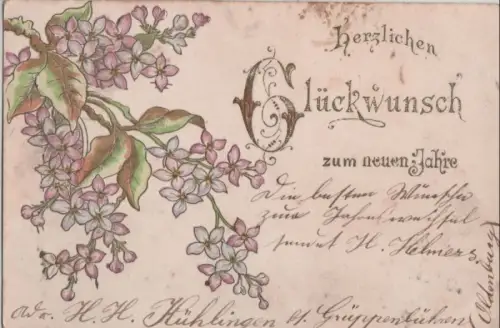 Herzlichen
Glückwunsch
zum neuen Jahre
Die besten Wünsche
zum Jahreswechsel
sendet H. Helmers
Oldenburg
adr. H. H. Kühlingen bs. Grüppenbühren